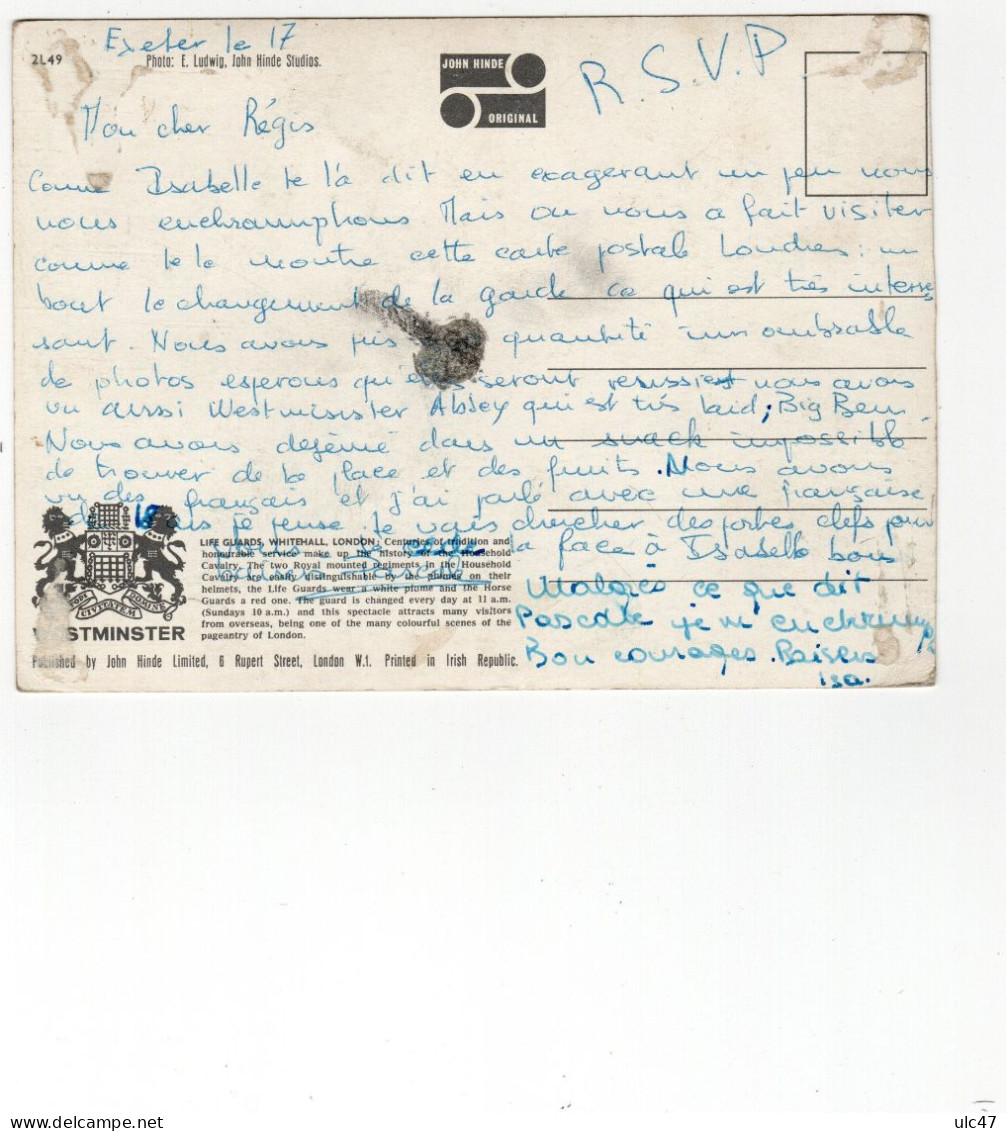 Exeter le 17
2L49
Photo: E. Ludwig, John Hinde Studios.
JOHN HINDE
ORIGINAL
R.S.V.P.
Mon cher Régis
Comme Isabelle te l'a dit en exagerant un peu nous
nous Mais on nous a fait visiter
comme te le montre cette carte postale Londres : un
bout le changement de la garde ce qui est très interes
sant. Nous avons pris quantité
de photos esperons qu' seront nous avons
vu aussi Westminister Abbey qui est très laid ; Big Ben
Nous avons dejéné dans un snack impossible
de trouver de la place et des fruits. Nous avons
vu des français et j'ai parlé avec une française
je vais chercher des portes clefs pour
la face à Isabelle bon
LIFE GUARDS, WHITEHALL, LONDON: Centuries of tradition and
honourable service make up the history of the Household
Cavalry. The two Royal mounted regiments in the Household
Cavalry are easily distinguishable by the plumes on their
helmets, the Life Guards wear a white plume and the Horse
Guards a red one. The guard is changed every day at 11 a.m.
(Sundays 10 a.m.) and this spectacle attracts many visitors
from overseas, being one of the many colourful scenes of the
pageantry of London.
WESTMINSTER
Malgrès ce que dit
Pascale je m'
Bon courages. Baisers
Isa.
Published by John Hinde Limited, 6 Rupert Street, London W.1. Printed in Irish Republic.
ulc47